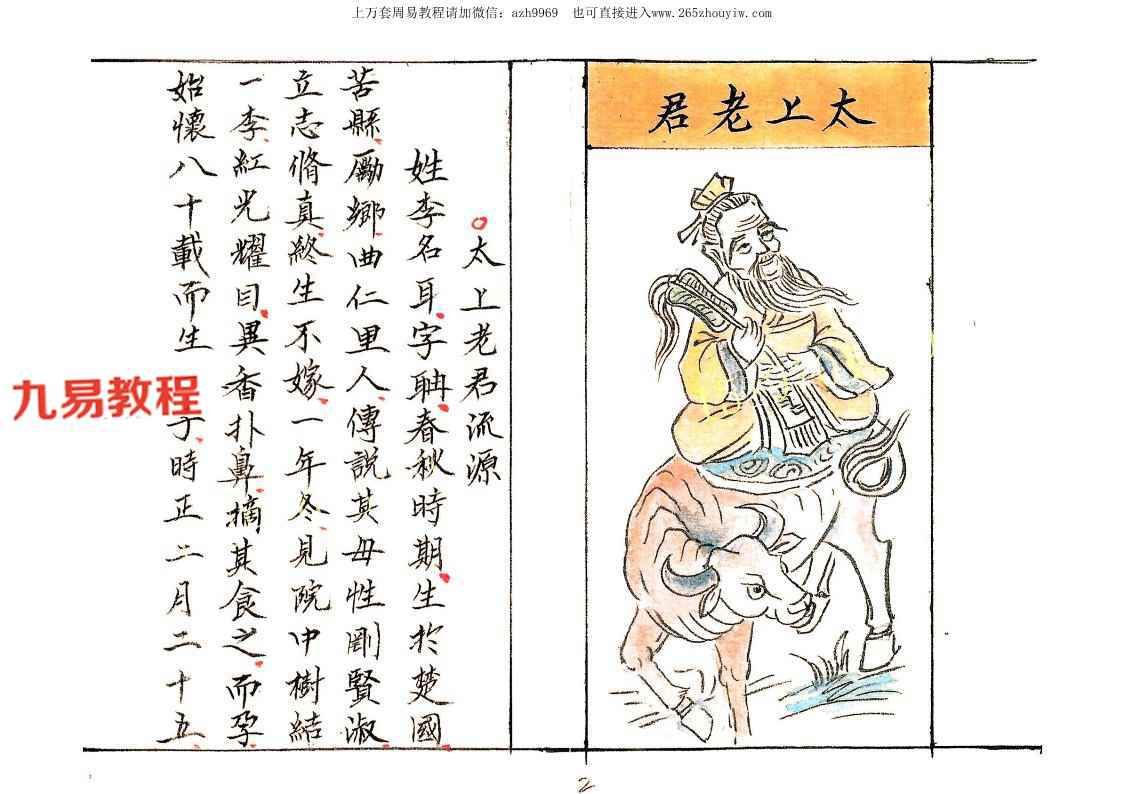 上万套周易教程请加微信：azh9969　也可直接进入www.265zhouyiw.com
太上老君
太上老君流源
姓李名耳字聃春秋時期生於楚國
苦縣厲鄉曲仁里人傳說其母性剛賢淑
立志脩真終生不嫁一年冬見院中樹結
一李紅光耀目異香扑鼻摘其食之而孕
始懷八十載而生于時正二月二十五
九易教程
2